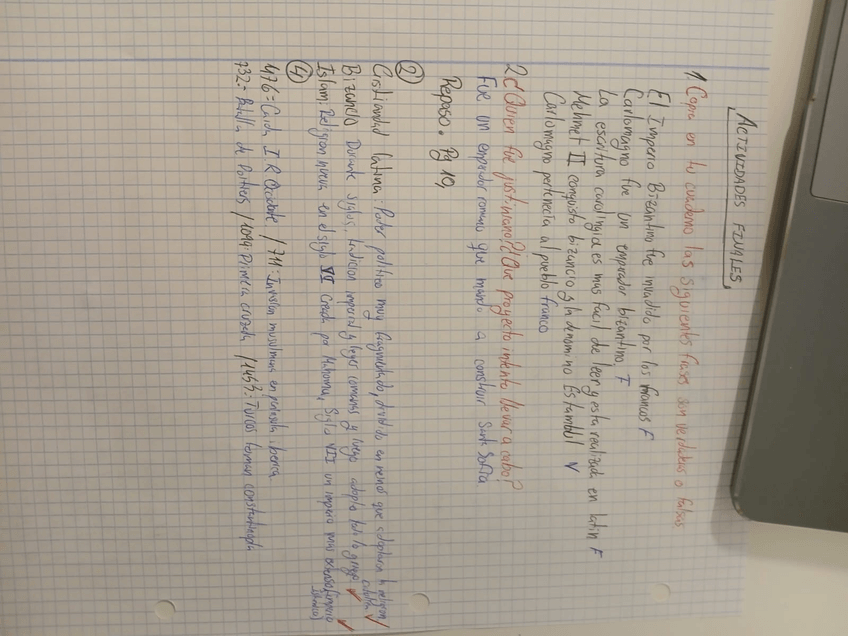 ACTIVIDADES FINALES
1. Copia en tu cuaderno las siguientes frases son verdaderas o falsas
El Imperio Bizantino fue invadido por los francos F
Carlomagno fue un emprador bizantino F
La escritura carolingia es mas facil de leer y esta realizada en latin F
Mehmet II conquisto bizancio y la denomino Estambul V
Carlomagno pertenecia al pueblo franco
2 ¿Quien fue justiniano? ¿Que proyecto intento llevar a cabo?
Fue un emprador romano que mando a construir Santa Sofia
Reposo. Pg 19,
2
Cristiandad latina: Poder politico muy fragmentado, dividido en reinos que adoptaron la religion catolica
Bizancio Durante siglos, tradicion imperial y leyes romanas y luego adopta todo lo griego
Islam: Religion nueva en el siglo VII Creada por Mahoma, Siglo VII un imperio muy extenso (imperio islamico)
4
476= Caida I R Occidente / 711: Invasion musulmana en peninsula iberica
732= Batalla de Poitiers / 1099: Primera cruzada / 1453: Turcos toman constantinopla